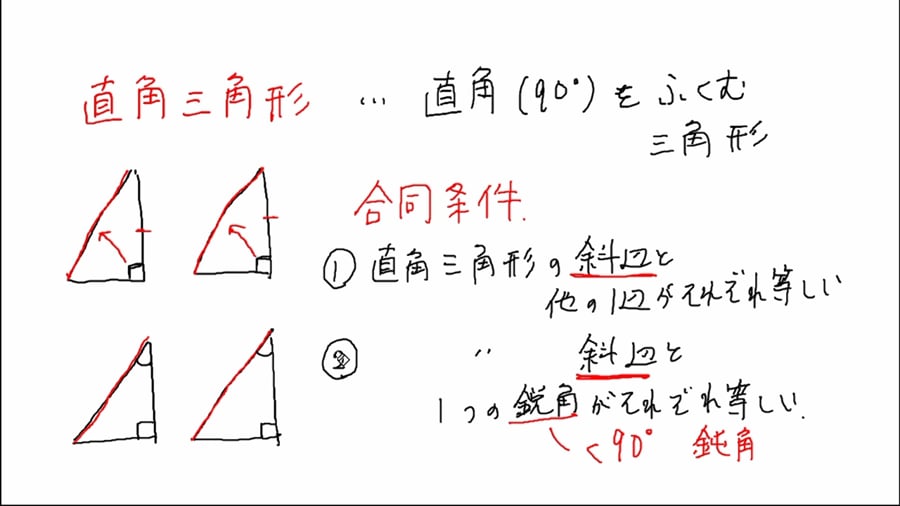 直角三角形 … 直角(90°)をふくむ
三角形
合同条件.
① 直角三角形の斜辺と
他の1辺がそれぞれ等しい
② 〃 斜辺と
1つの鋭角がそれぞれ等しい.
<90° 鈍角